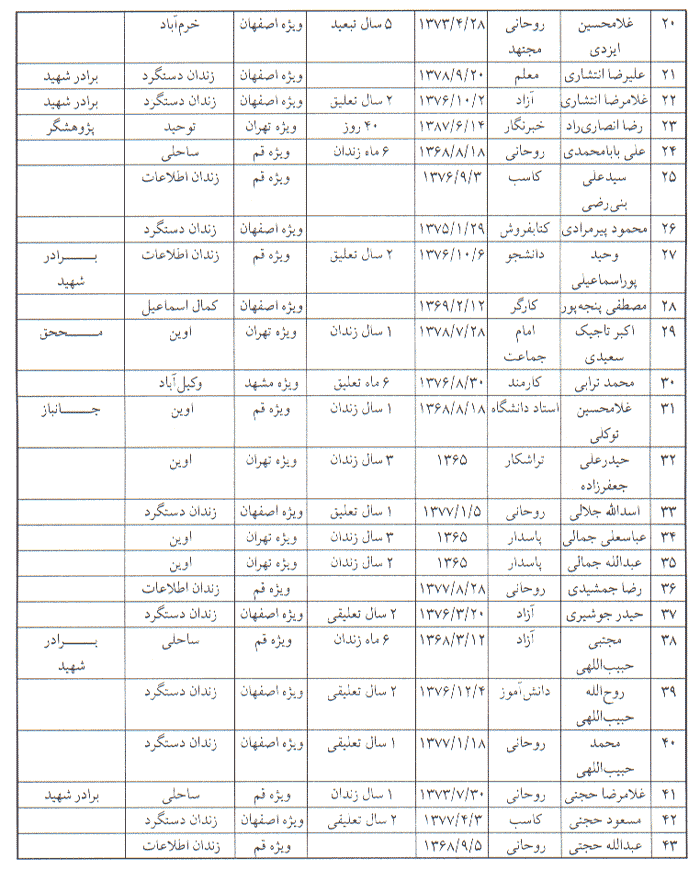 ۲۰ غلامحسین ایزدی روحانی مجتهد ۱۳۷۳/۴/۲۸ ۵ سال تبعید ویژه اصفهان خرم‌آباد
۲۱ علیرضا انتشاری معلم ۱۳۷۸/۹/۲۰ ویژه اصفهان زندان دستگرد برادر شهید
۲۲ غلامرضا انتشاری آزاد ۱۳۷۶/۱۰/۲ ۲ سال تعلیق ویژه اصفهان زندان دستگرد برادر شهید
۲۳ رضا انصاری‌راد خبرنگار ۱۳۸۷/۶/۱۴ ۴۰ روز ویژه تهران توحید پژوهشگر
۲۴ علی بابامحمدی روحانی ۱۳۶۸/۸/۱۸ ۶ ماه زندان ویژه قم ساحلی
۲۵ سیدعلی بنی‌رضی کاسب ۱۳۷۶/۹/۳ ویژه قم زندان اطلاعات
۲۶ محمود پیرمرادی کتابفروش ۱۳۷۵/۱/۲۹ ویژه اصفهان زندان دستگرد
۲۷ وحید پوراسماعیلی دانشجو ۱۳۷۶/۱۰/۶ ۲ سال تعلیق ویژه قم زندان اطلاعات بـــرادر شهید
۲۸ مصطفی پنجه‌پور کارگر ۱۳۶۹/۲/۱۲ ویژه اصفهان کمال اسماعیل
۲۹ اکبر تاجیک سعیدی امام جماعت ۱۳۷۸/۷/۲۸ ۱ سال زندان ویژه تهران اوین مــــحقق
۳۰ محمد ترابی کارمند ۱۳۷۶/۸/۳۰ ۶ ماه تعلیق ویژه مشهد وکیل‌آباد
۳۱ غلامحسین توکلی استاد دانشگاه ۱۳۶۸/۸/۱۸ ۱ سال زندان ویژه قم اوین جــــانباز
۳۲ حیدرعلی جعفرزاده تراشکار ۱۳۶۵ ۳ سال زندان ویژه تهران اوین
۳۳ اسدالله جلالی روحانی ۱۳۷۷/۱/۵ ۱ سال تعلیق ویژه اصفهان زندان دستگرد
۳۴ عباسعلی جمالی پاسدار ۱۳۶۵ ۳ سال زندان ویژه تهران اوین
۳۵ عبدالله جمالی پاسدار ۱۳۶۵ ۲ سال زندان ویژه تهران اوین
۳۶ رضا جمشیدی روحانی ۱۳۷۷/۸/۲۸ ویژه قم زندان اطلاعات
۳۷ حیدر جوشیری آزاد ۱۳۷۶/۳/۲۰ ۲ سال تعلیقی ویژه اصفهان زندان دستگرد
۳۸ مجتبی حبیب‌اللهی آزاد ۱۳۶۸/۳/۱۲ ۶ ماه زندان ویژه قم ساحلی بـــرادر شهید
۳۹ روح‌الله حبیب‌اللهی دانش‌آموز ۱۳۷۶/۱۲/۴ ۲ سال تعلیقی ویژه اصفهان زندان دستگرد
۴۰ محمد حبیب‌اللهی روحانی ۱۳۷۷/۱/۱۸ ۱ سال تعلیقی ویژه اصفهان زندان دستگرد
۴۱ غلامرضا حجتی روحانی ۱۳۷۳/۷/۳۰ ۱ سال زندان ویژه قم ساحلی برادر شهید
۴۲ مسعود حجتی کاسب ۱۳۷۷/۴/۳ ۲ سال تعلیقی ویژه اصفهان زندان دستگرد
۴۳ عبدالله حجتی روحانی ۱۳۶۸/۹/۵ ویژه قم زندان اطلاعات